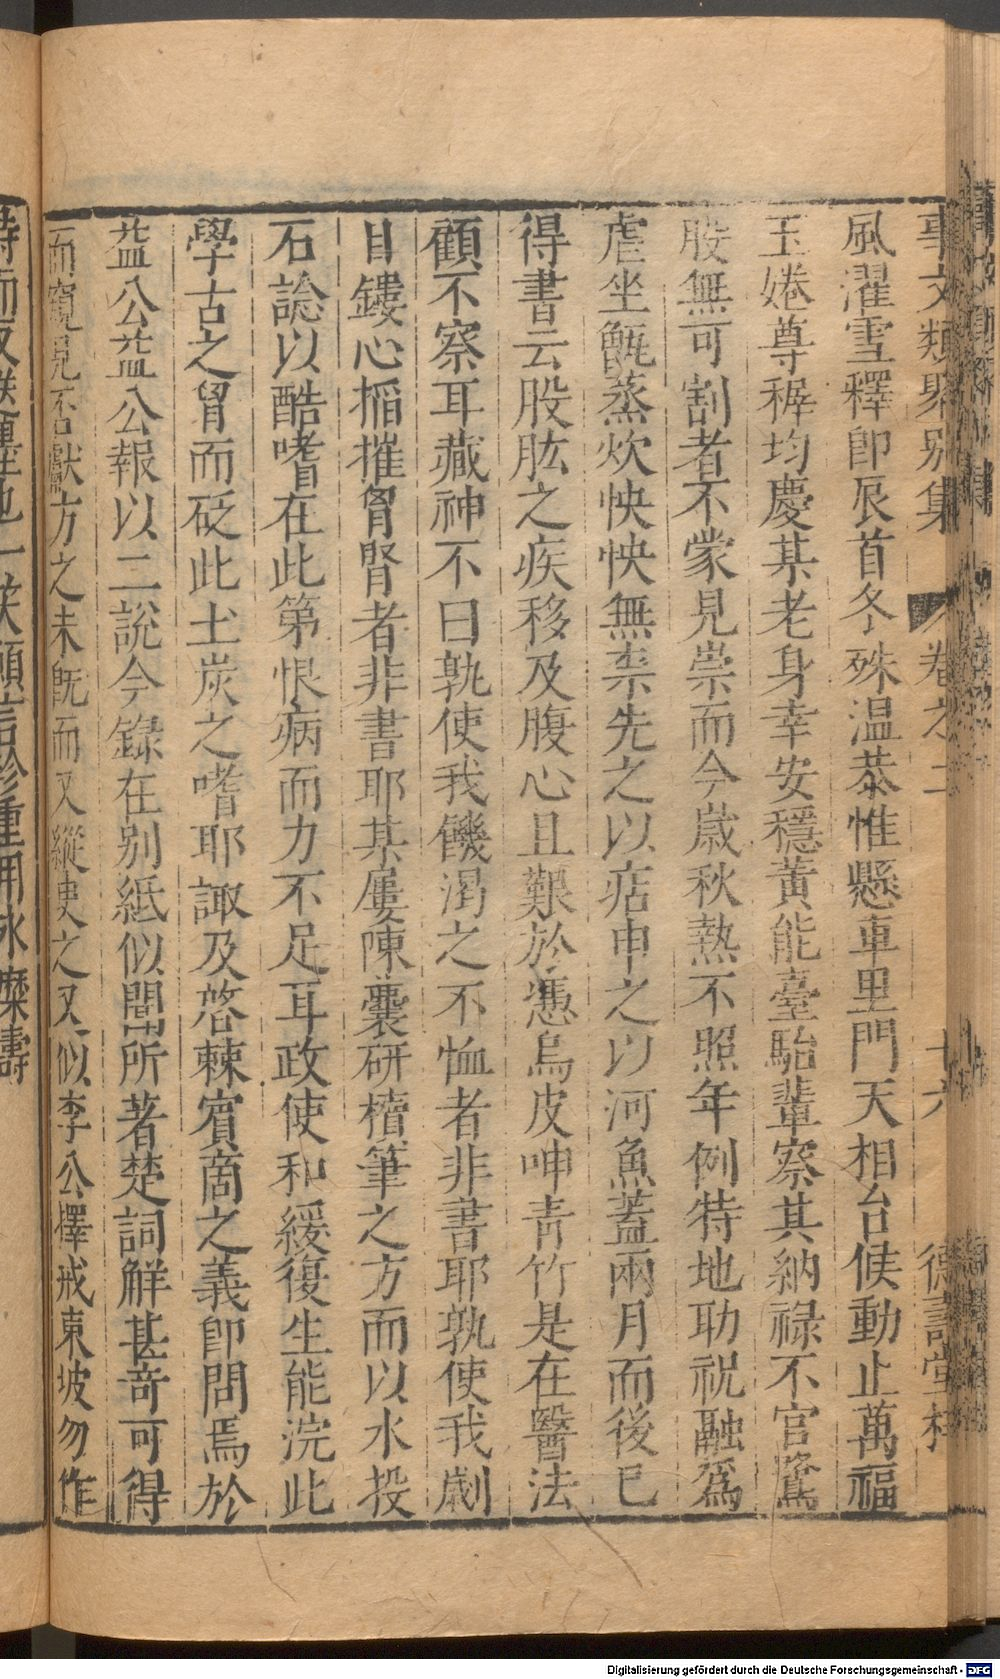 事文類聚别集 卷之二 十六 德壽堂梓
風濯雪釋卽辰首冬殊温恭惟懸車里門天相台候動止萬福
玉婘尊稺均慶某老身幸安穩黃能臺駘輩察其納祿不官鷟
股無可割者不蒙見崇而今歲秋熱不照年例特地助祝融爲
虐坐甑蒸炊怏怏無柰先之以痁申之以河魚蓋兩月而後已
得書云股肱之疾移及腹心且艱於慿烏皮呻青竹是在醫法
顧不察耳藏神不曰孰使我饑渴之不恤者非書耶孰使我劌
目鏤心掐摧胷腎者非書耶某屢陳囊研櫝筆之方而以水投
石諗以酷嗜在此第恨病而力不足耳政使和緩復生能浣此
學古之胃而砭此土炭之嗜耶諏及棼棘賓啇之義卽問焉於
益公益公報以二說今錄在别紙似聞所著楚詞解甚奇可得
而窺見不獻方之未旣而又縱臾之又似李公擇戒東坡勿作
詩而又 之也一笑願言珍重用冰槃壽